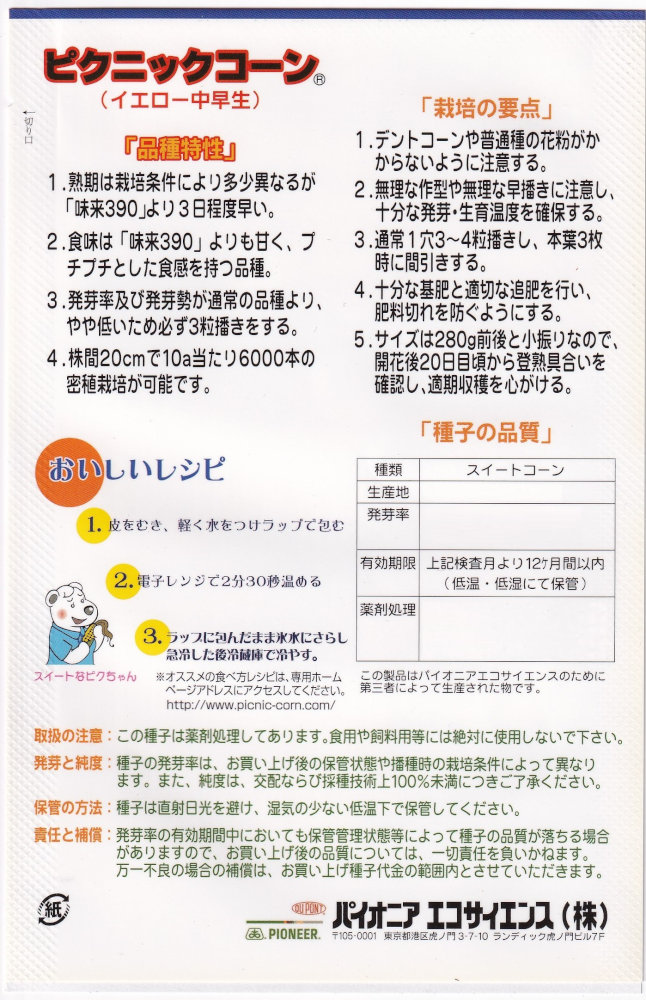 ピクニックコーン®
（イエロー中早生）
←切り口
「品種特性」
1.熟期は栽培条件により多少異なるが
「味来390」より3日程度早い。
2.食味は「味来390」よりも甘く、プ
チプチとした食感を持つ品種。
3.発芽率及び発芽勢が通常の品種より、
やや低いため必ず3粒播きをする。
4.株間20cmで10a当たり6000本の
密植栽培が可能です。
「栽培の要点」
1.デントコーンや普通種の花粉がか
からないように注意する。
2.無理な作型や無理な早播きに注意し、
十分な発芽・生育温度を確保する。
3.通常1穴3〜4粒播きし、本葉3枚
時に間引きする。
4.十分な基肥と適切な追肥を行い、
肥料切れを防ぐようにする。
5.サイズは280g前後と小振りなので、
開花後20日目頃から登熟具合いを
確認し、適期収穫を心がける。
おいしいレシピ
1.皮をむき、軽く水をつけラップで包む
2.電子レンジで2分30秒温める
3.ラップに包んだまま氷水にさらし
急冷した後冷蔵庫で冷やす。
スイートなピクちゃん
※オススメの食べ方レシピは、専用ホーム
ページアドレスにアクセスしてください。
http://www.picnic-corn.com/
「種子の品質」
種類 スイートコーン
生産地
発芽率
有効期限 上記検査月より12ケ月間以内
（低温・低湿にて保管）
薬剤処理
この製品はパイオニアエコサイエンスのために
第三者によって生産された物です。
取扱の注意：この種子は薬剤処理してあります。食用や飼料用等には絶対に使用しないで下さい。
発芽と純度：種子の発芽率は、お買い上げ後の保管状態や播種時の栽培条件によって異なり
ます。また、純度は、交配ならび採種技術上100%未満につきご了承ください。
保管の方法：種子は直射日光を避け、湿気の少ない低温下で保管してください。
責任と補償：発芽率の有効期間中においても保管管理状態等によって種子の品質が落ちる場合
がありますので、お買い上げ後の品質については、一切責任を負いかねます。
万一不良の場合の補償は、お買い上げ種子代金の範囲内とさせていただきます。
紙
DU PONT
PIONEER.
パイオニア エコサイエンス（株）
〒105-0001 東京都港区虎ノ門3-7-10 ランディック虎ノ門ビル7F